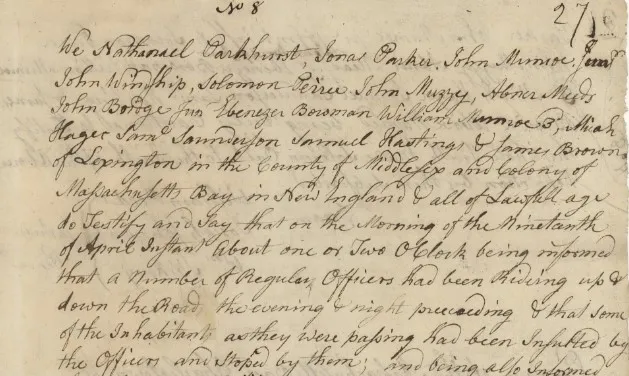 No 8
27
We Nathanael Parkhurst, Jonas Parker, John Munroe Junr
John Windship, Solomon Peirce John Muzzey, Abner Meeds
John Bordge Jun Ebenezer Bowman William Munroe 3, Micah
Hager Saml Saunderson Samuel Hastings & James Brown
of Lexington in the County of Middlesex and Colony of
Massachusetts Bay in New England & all of Lawfull age
do Testify and Say that on the Morning of the Ninetanth
of April Instant About one or Two OClock being informed
that a Number of Regular Officers had been Riding up &
down the Road the evening & night preceeding & that some
of the Inhabitants as they were passing had been Insulted by
the Officers and Stoped by them; and being also Informed